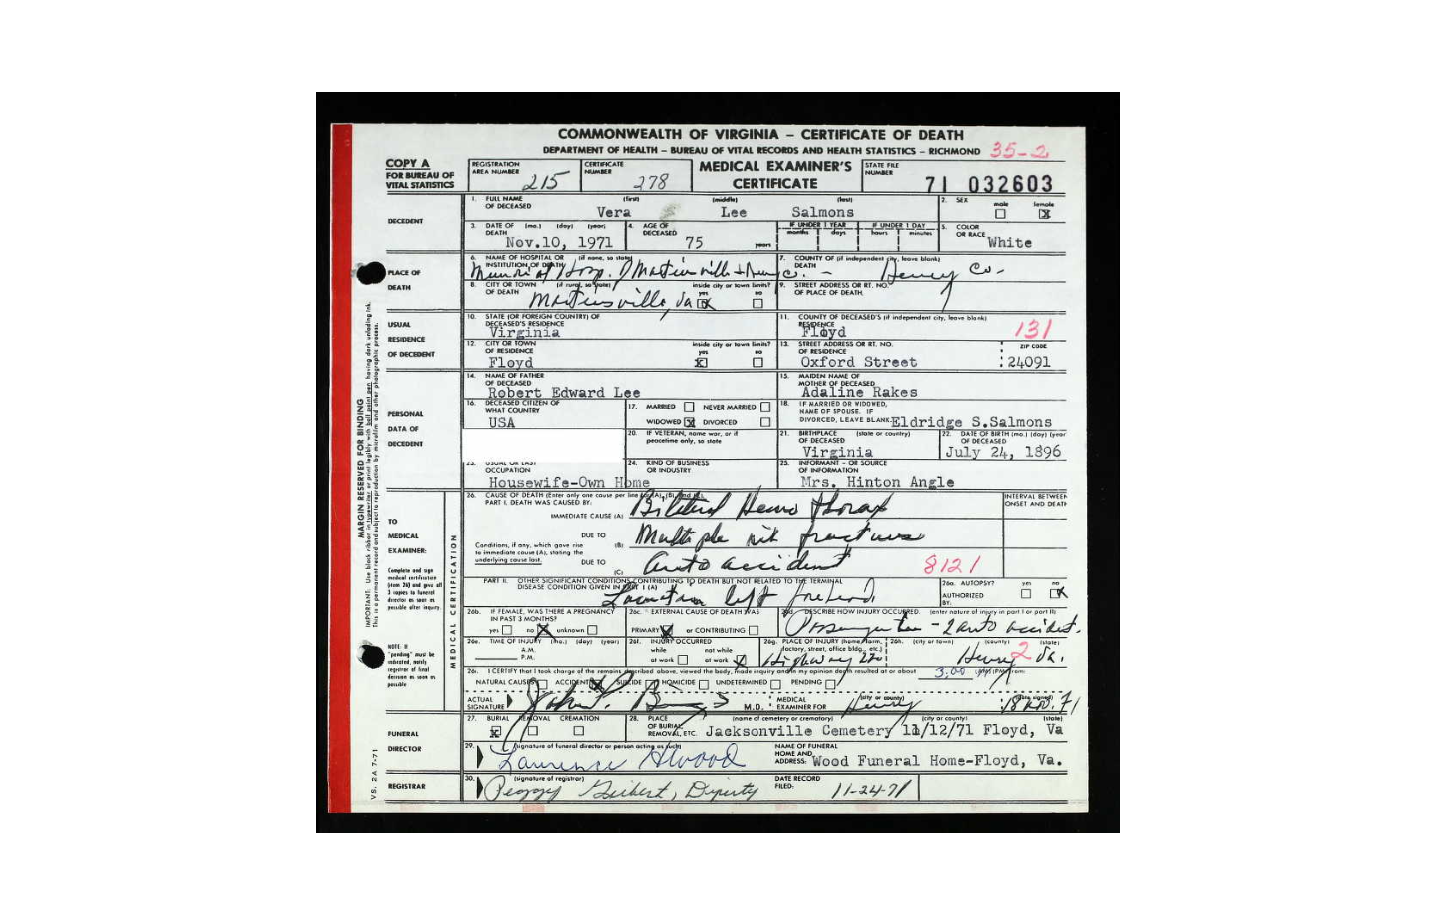 COMMONWEALTH OF VIRGINIA – CERTIFICATE OF DEATH
DEPARTMENT OF HEALTH – BUREAU OF VITAL RECORDS AND HEALTH STATISTICS – RICHMOND 35-2
COPY A
FOR BUREAU OF VITAL STATISTICS
REGISTRATION AREA NUMBER 215
CERTIFICATE NUMBER 278
MEDICAL EXAMINER'S CERTIFICATE
STATE FILE NUMBER 71 032603
DECEDENT
1. FULL NAME OF DECEASED (first) (middle) (last) Vera Lee Salmons
2. SEX male female X
3. DATE OF DEATH (mo.) (day) (year) Nov.10, 1971
4. AGE OF DECEASED 75 years
IF UNDER 1 YEAR months days
IF UNDER 1 DAY hours minutes
5. COLOR OR RACE White
PLACE OF DEATH
6. NAME OF HOSPITAL OR INSTITUTION OF DEATH (if none, so state) Hosp. Martinsville + Henry Co. –
7. COUNTY OF DEATH (if independent city, leave blank) Henry Co-
8. CITY OR TOWN OF DEATH (if rural, so state) Martinsville, Va inside city or town limits? yes X no
9. STREET ADDRESS OR RT. NO. OF PLACE OF DEATH
USUAL RESIDENCE OF DECEDENT
10. STATE (OR FOREIGN COUNTRY) OF DECEASED'S RESIDENCE Virginia
11. COUNTY OF DECEASED'S RESIDENCE (if independent city, leave blank) Floyd 131
12. CITY OR TOWN OF RESIDENCE Floyd inside city or town limits? yes X no
13. STREET ADDRESS OR RT. NO. OF RESIDENCE Oxford Street ZIP CODE 24091
PERSONAL DATA OF DECEDENT
14. NAME OF FATHER OF DECEASED Robert Edward Lee
15. MAIDEN NAME OF MOTHER OF DECEASED Adaline Rakes
16. DECEASED CITIZEN OF WHAT COUNTRY USA
17. MARRIED NEVER MARRIED WIDOWED X DIVORCED
18. IF MARRIED OR WIDOWED, NAME OF SPOUSE. IF DIVORCED, LEAVE BLANK Eldridge S.Salmons
20. IF VETERAN, name war, or if peacetime only, so state
21. BIRTHPLACE OF DECEASED (state or country) Virginia
22. DATE OF BIRTH (mo.) (day) (year) OF DECEASED July 24, 1896
23. USUAL OR LAST OCCUPATION Housewife-Own Home
24. KIND OF BUSINESS OR INDUSTRY
25. INFORMANT - OR SOURCE OF INFORMATION Mrs. Hinton Angle
MARGIN RESERVED FOR BINDING
MEDICAL CERTIFICATION
TO MEDICAL EXAMINER:
Complete and sign medical certification (item 26) and give all 3 copies to funeral director as soon as possible after inquiry.
NOTE: If "pending" must be indicated, notify registrar of final decision as soon as possible
26. CAUSE OF DEATH (Enter only one cause per line for (A), (B), and (C).
PART I. DEATH WAS CAUSED BY:
INTERVAL BETWEEN ONSET AND DEATH
IMMEDIATE CAUSE (A) Bilateral Hemo thorax
Conditions, if any, which gave rise to immediate cause (A), stating the underlying cause last.
DUE TO (B) Multiple rib fractures
DUE TO (C) auto accident 8121
PART II. OTHER SIGNIFICANT CONDITIONS CONTRIBUTING TO DEATH BUT NOT RELATED TO THE TERMINAL DISEASE CONDITION GIVEN IN PART I (A) left
26a. AUTOPSY? yes no X AUTHORIZED BY:
26b. IF FEMALE, WAS THERE A PREGNANCY IN PAST 3 MONTHS? yes no X unknown
26c. EXTERNAL CAUSE OF DEATH WAS PRIMARY X or CONTRIBUTING
26d. DESCRIBE HOW INJURY OCCURRED. (enter nature of injury in part I or part II) Passenger in – 2 auto accident.
26e. TIME OF INJURY (mo.) (day) (year) A.M. P.M.
26f. INJURY OCCURRED while at work not while at work X
26g. PLACE OF INJURY (home, farm, factory, street, office bldg., etc.) Highway 220
26h. (city or town) (county) (state) Henry 2 Va.
26i. I CERTIFY that I took charge of the remains described above, viewed the body, made inquiry and in my opinion death resulted at or about 3:00 (P)M from:
NATURAL CAUSES ACCIDENT X SUICIDE HOMICIDE UNDETERMINED PENDING
ACTUAL SIGNATURE John P. M.D. MEDICAL EXAMINER FOR (city or county) Henry (date signed) 18 Nov. 71
FUNERAL DIRECTOR
27. BURIAL X REMOVAL CREMATION
28. PLACE OF BURIAL, REMOVAL, ETC. (name of cemetery or crematory) (city or county) (state) Jacksonville Cemetery 11/12/71 Floyd, Va
29. (signature of funeral director or person acting as such) Laurence Wood
NAME OF FUNERAL HOME AND ADDRESS: Wood Funeral Home-Floyd, Va.
REGISTRAR
30. (signature of registrar) Peggy Deputy
DATE RECORD FILED: 11-24-71
VS. 2A 7-71